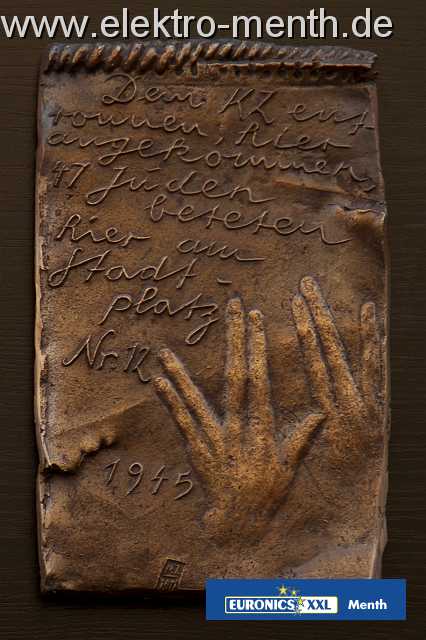 www.elektro-menth.de
Dem KZ ent
ronnen, hier
angekommen,
47 Juden
beteten
hier am
Stadt-
platz
Nr. 12
1945
EURONICS XXL Menth